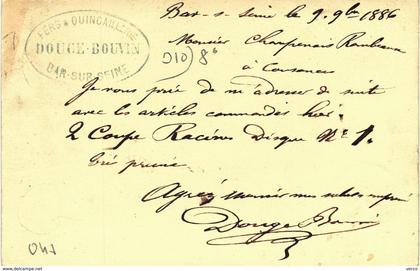 FERS & QUINCAILLERIE
DOUGE-BOUVIN
BAR-SUR-SEINE
Bar-s-Seine le 9. 9bre 1886
Monsieur Champenois Rambeaux
à Cousances
Je vous prie de m'adresser de suite
avec les articles commandés hier.
2 Coupe Racines Disque N° 1.
Agréez Monsieur mes salut empressés
Douge Bouvin